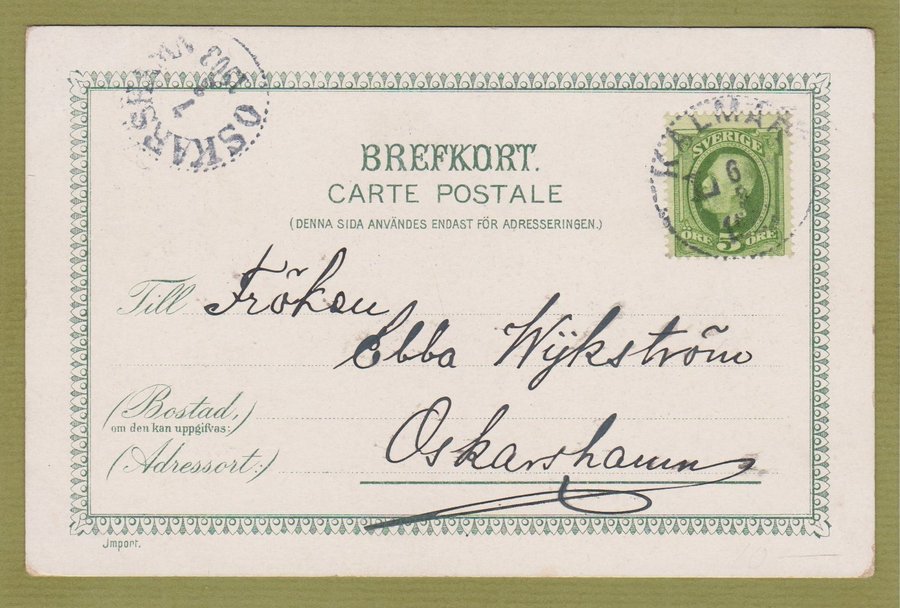 OSKARSHAMN
1903
KALMAR
SVERIGE
6
5
ÖRE 5 ÖRE
BREFKORT.
CARTE POSTALE
(DENNA SIDA ANVÄNDES ENDAST FÖR ADRESSERINGEN.)
Till Fröken
Ebba Wijkström
(Bostad,)
om den kan uppgifvas:
(Adressort:)
Oskarshamn
Import.